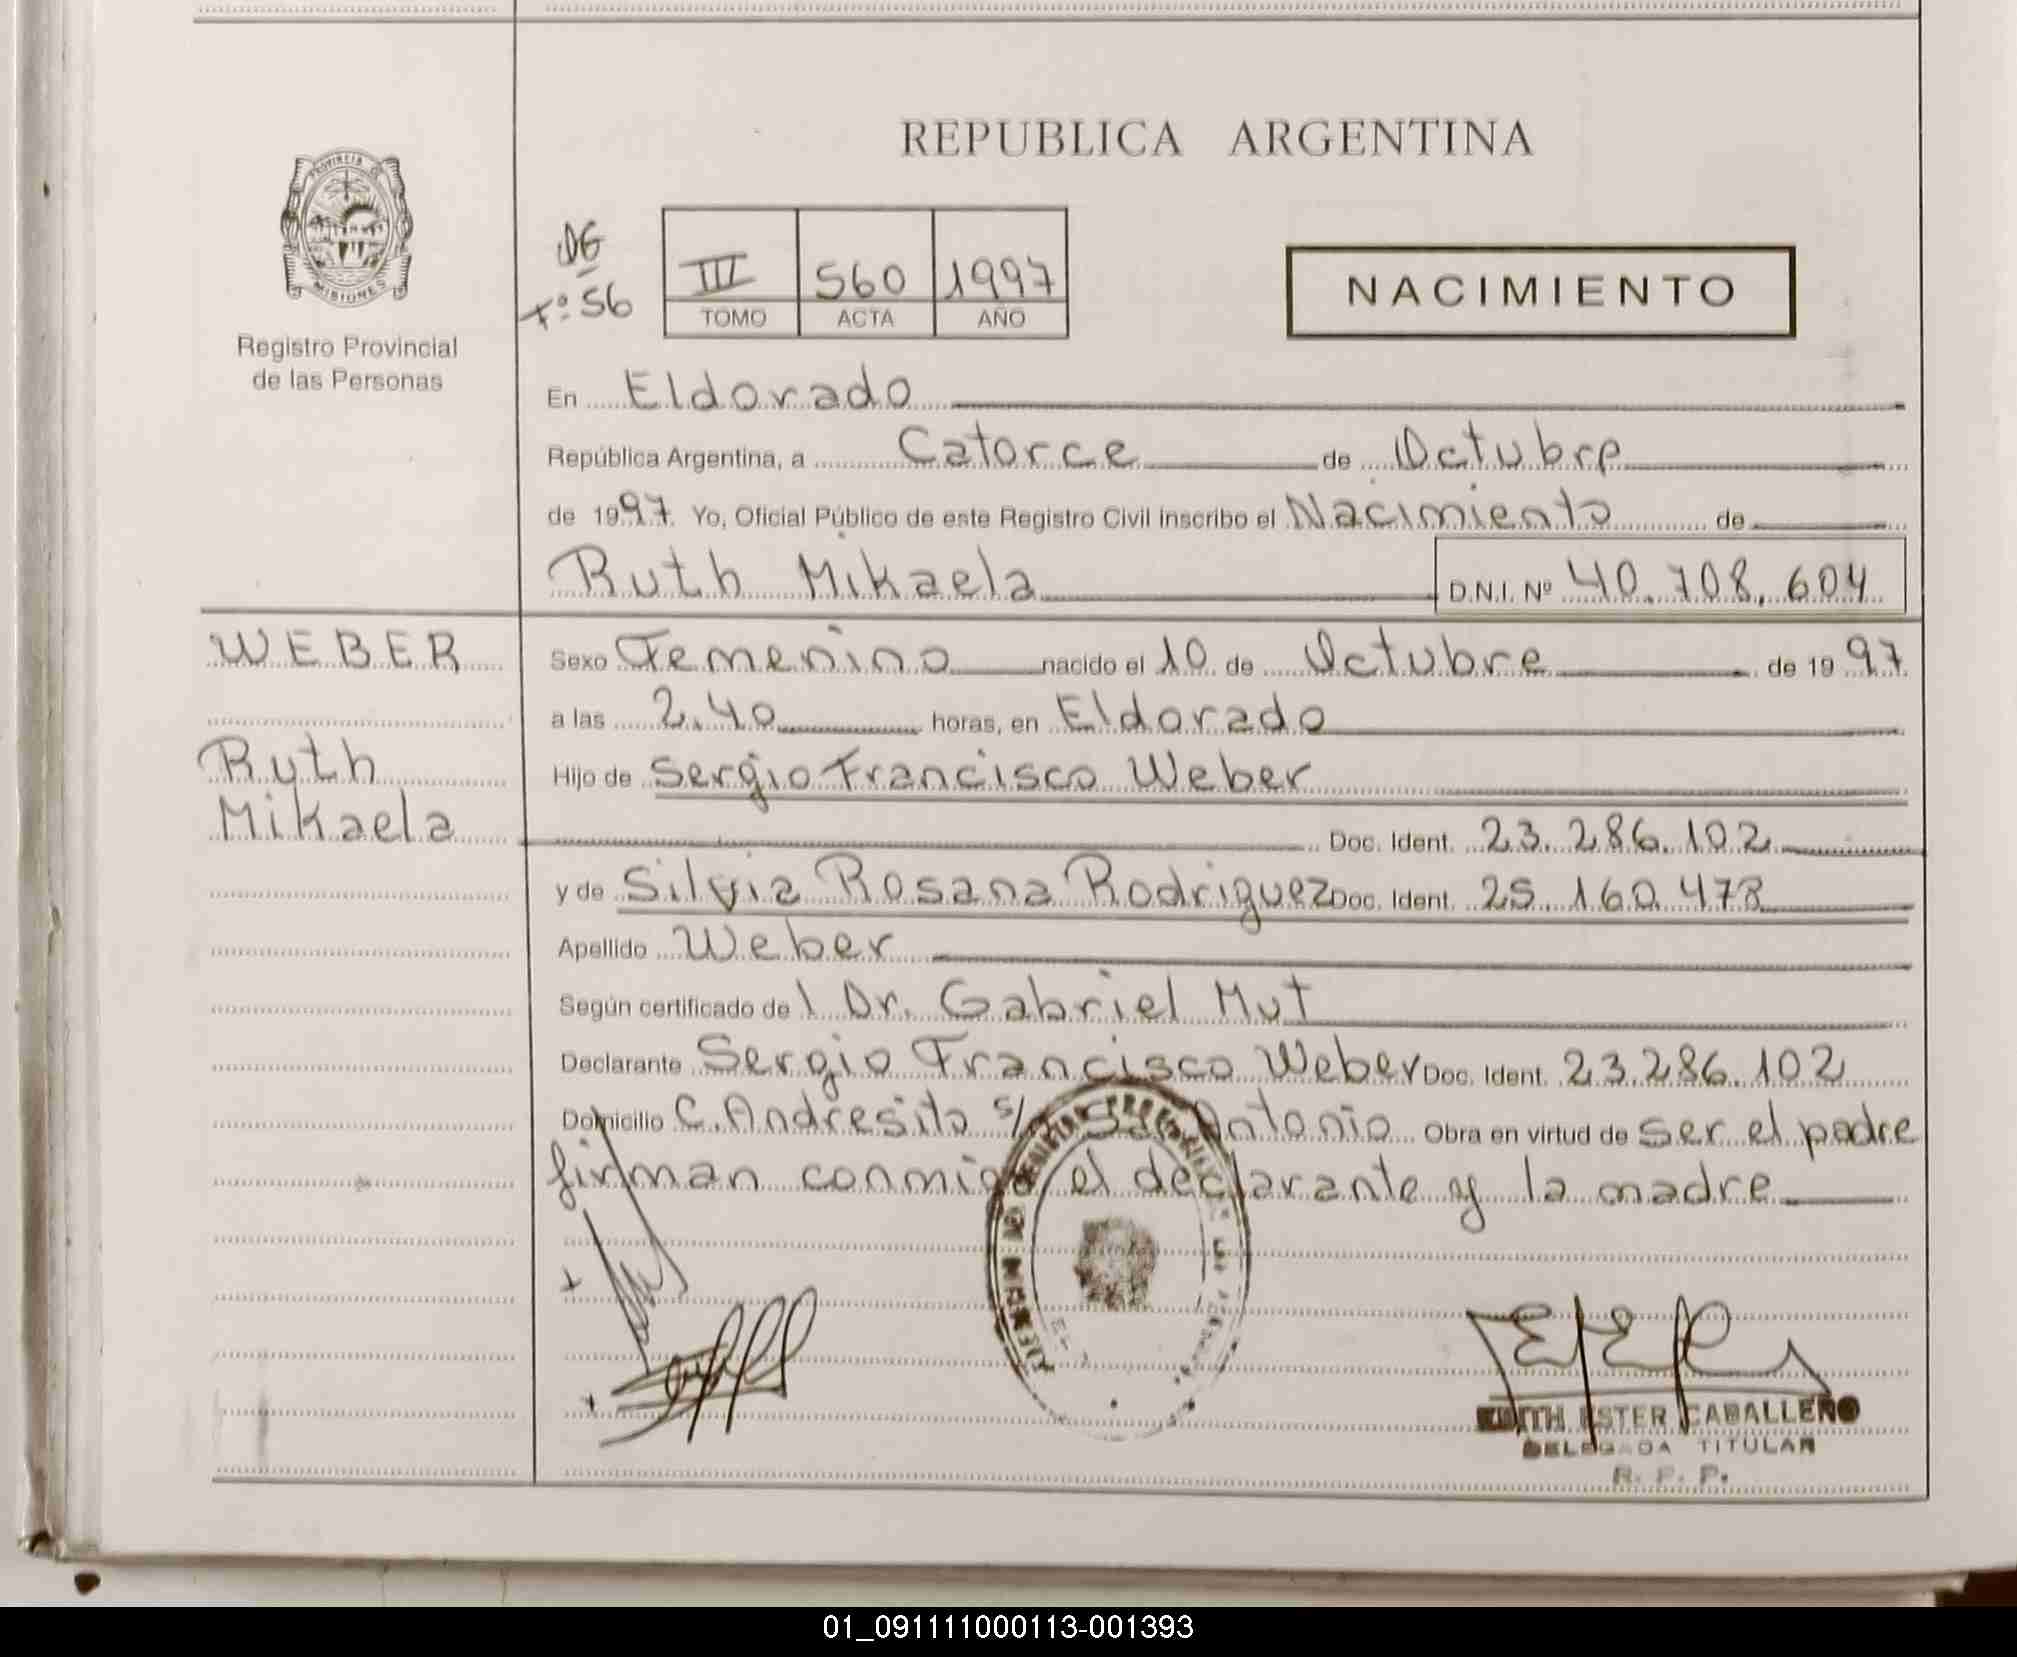 REPUBLICA ARGENTINA
PROVINCIA DE
MISIONES
Registro Provincial
de las Personas
Fº 56
III 560 1997
TOMO ACTA AÑO
NACIMIENTO
En Eldorado
República Argentina, a Catorce de Octubre
de 1997. Yo, Oficial Público de este Registro Civil inscribo el Nacimiento de
Ruth Mikaela D.N.I. Nº 40.708.604
WEBER
Ruth
Mikaela
Sexo Femenino nacido el 10 de Octubre de 1997
a las 2.40 horas, en Eldorado
Hijo de Sergio Francisco Weber
Doc. Ident. 23.286.102
y de Silvia Rosana Rodriguez Doc. Ident. 25.160.478
Apellido Weber
Según certificado de l Dr. Gabriel Mut
Declarante Sergio Francisco Weber Doc. Ident. 23.286.102
Domicilio C. Andresito s/ Antonio Obra en virtud de ser el padre
firman conmigo el declarante y la madre
EDITH ESTER CABALLERO
DELEGADA TITULAR
R. P. P.
01_091111000113-001393